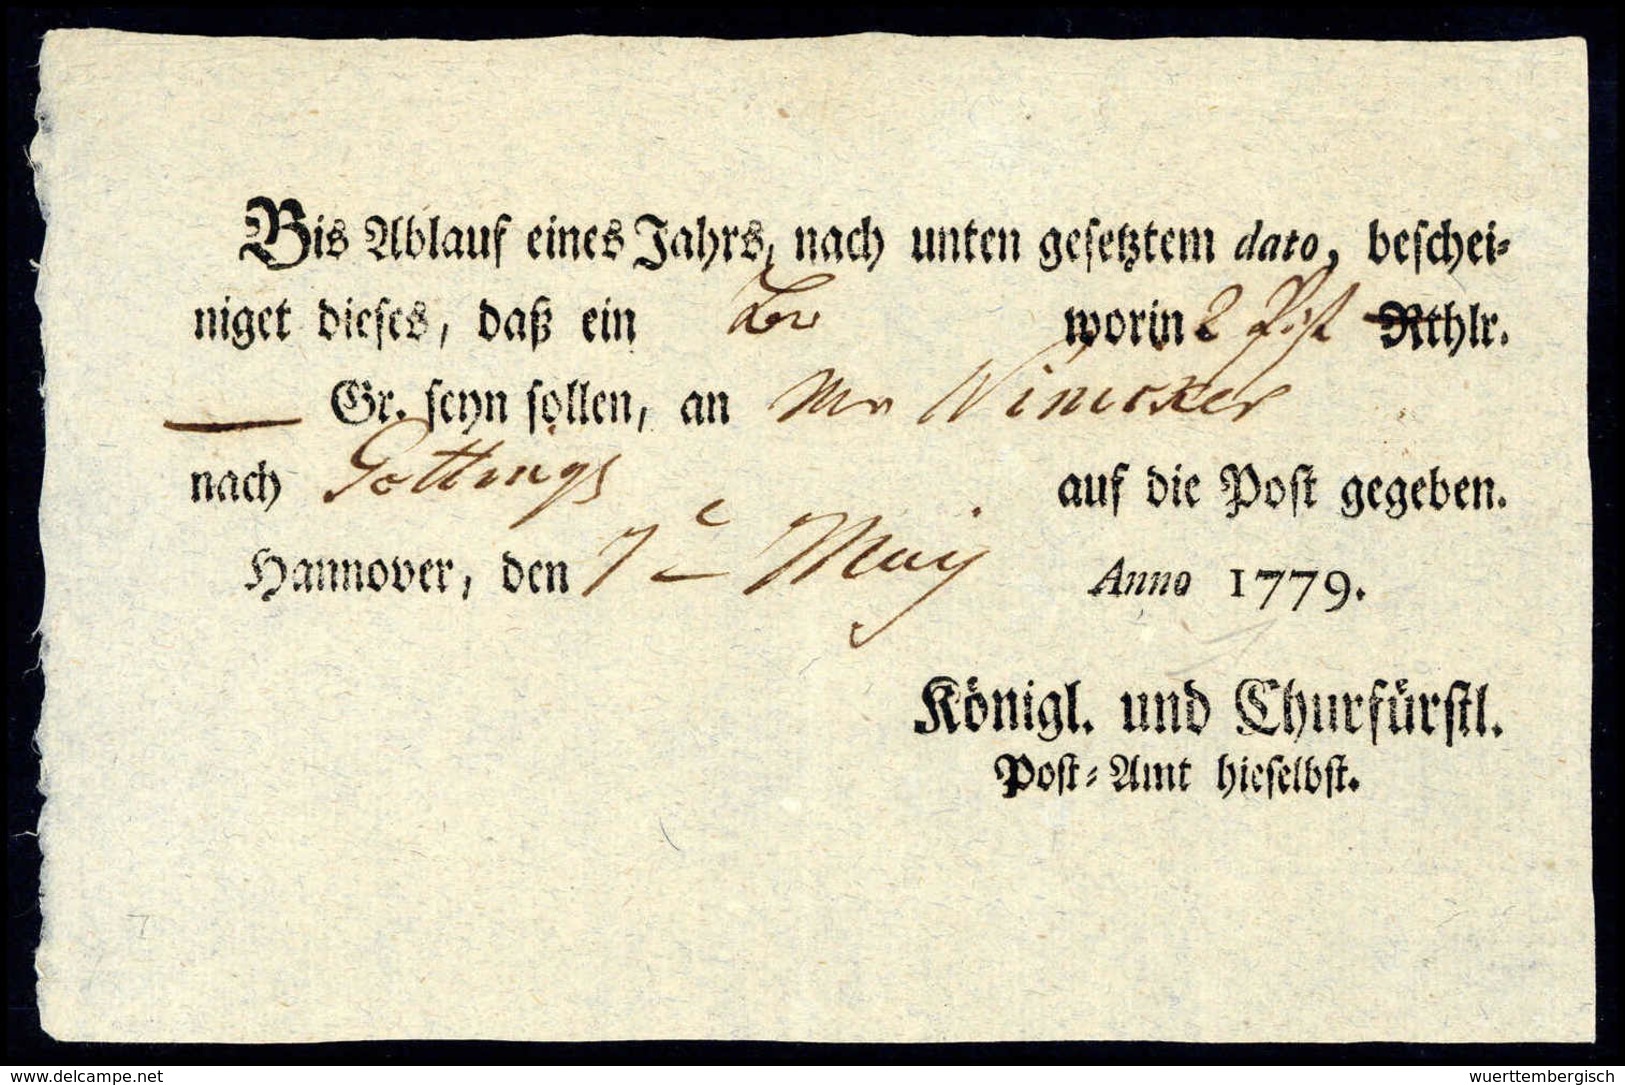 Bis Ablauf eines Jahrs, nach unten gesetztem dato, beschei-
niget dieses, daß ein worin 2 Pist Rthlr.
— Gr. seyn sollen, an Mr
nach Göttings auf die Post gegeben.
Hannover, den 7 May Anno 1779.
Königl. und Churfürstl.
Post-Amt hieselbst.
www.delcampe.net
wuerttembergisch